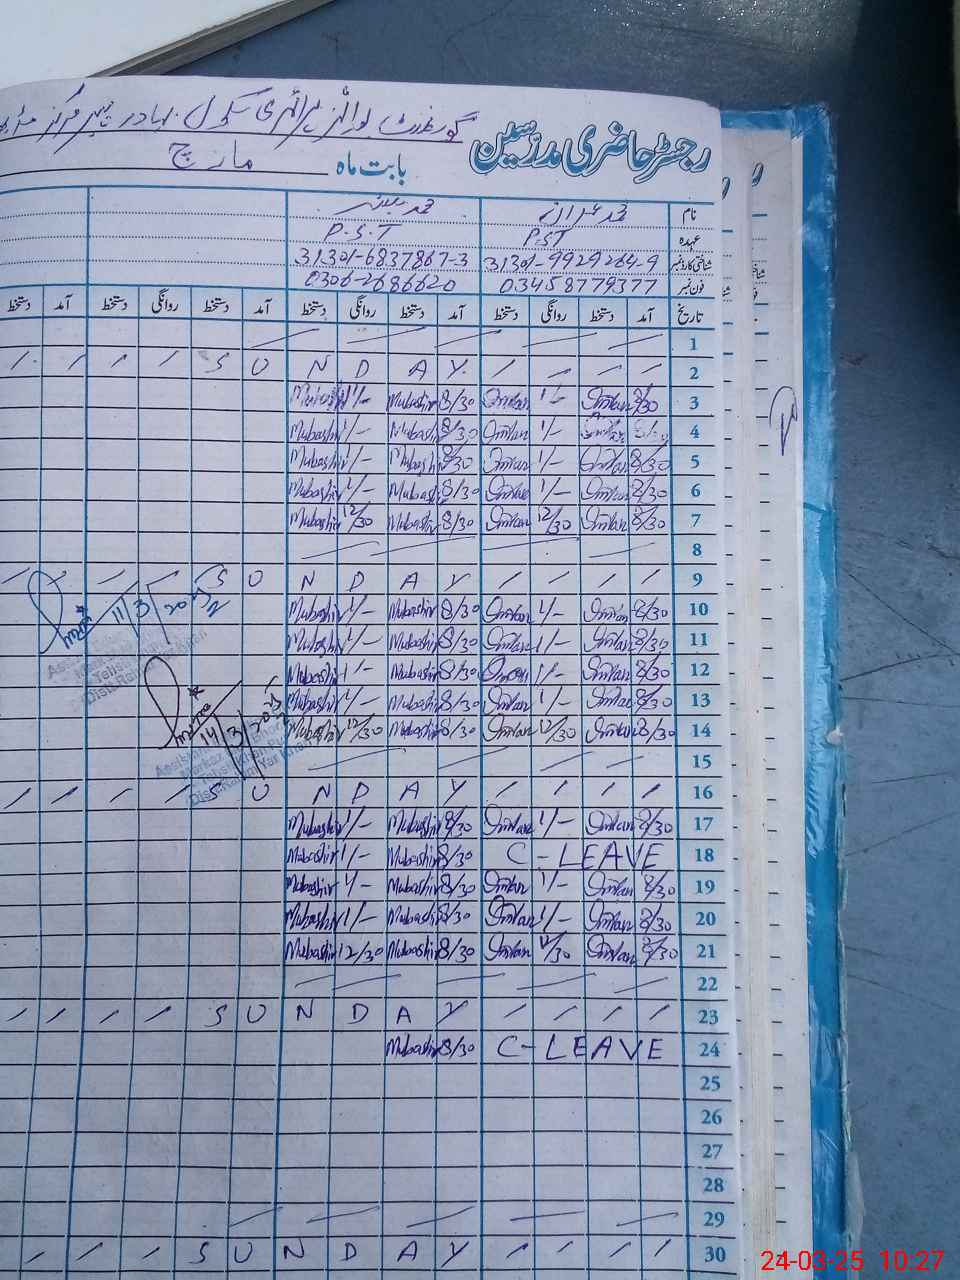 رجسٹر حاضری مدرسین گورنمنٹ بوائز پرائمری سکول بہادر
بابت ماہ مارچ
نام محمد عمران محمد مبشر
عہدہ PST P.S.T
شناختی کارڈ نمبر 31301-9929264-9 31301-6837867-3
فون نمبر 03458779377 0306-2686620
تاریخ آمد دستخط روانگی دستخط آمد دستخط روانگی دستخط آمد دستخط روانگی دستخط آمد دستخط
1
2 SUNDAY
3 8/30 Imran 1/- Imran 8/30 Mubashir 1/- Mubashir
4 8/30 Imran 1/- Imran 8/30 Mubashir 1/- Mubashir
5 8/30 Imran 1/- Imran 8/30 Mubashir 1/- Mubashir
6 8/30 Imran 1/- Imran 8/30 Mubashir 1/- Mubashir
7 8/30 Imran 12/30 Imran 8/30 Mubashir 12/30 Mubashir
8
9 SUNDAY
10 8/30 Imran 1/- Imran 8/30 Mubashir 1/- Mubashir
11 8/30 Imran 1/- Imran 8/30 Mubashir 1/- Mubashir
11/3/2025
12 8/30 Imran 1/- Imran 8/30 Mubashir 1/- Mubashir
13 8/30 Imran 1/- Imran 8/30 Mubashir 1/- Mubashir
14 8/30 Imran 12/30 Imran 8/30 Mubashir 12/30 Mubashir
14/3/2025
15
16 SUNDAY
17 8/30 Imran 1/- Imran 8/30 Mubashir 1/- Mubashir
18 C-LEAVE 8/30 Mubashir 1/- Mubashir
19 8/30 Imran 1/- Imran 8/30 Mubashir 1/- Mubashir
20 8/30 Imran 1/- Imran 8/30 Mubashir 1/- Mubashir
21 8/30 Imran 12/30 Imran 8/30 Mubashir 12/30 Mubashir
22
23 SUNDAY
24 C-LEAVE 8/30 Mubashir
25
26
27
28
29
30 SUNDAY
24-03-25 10:27